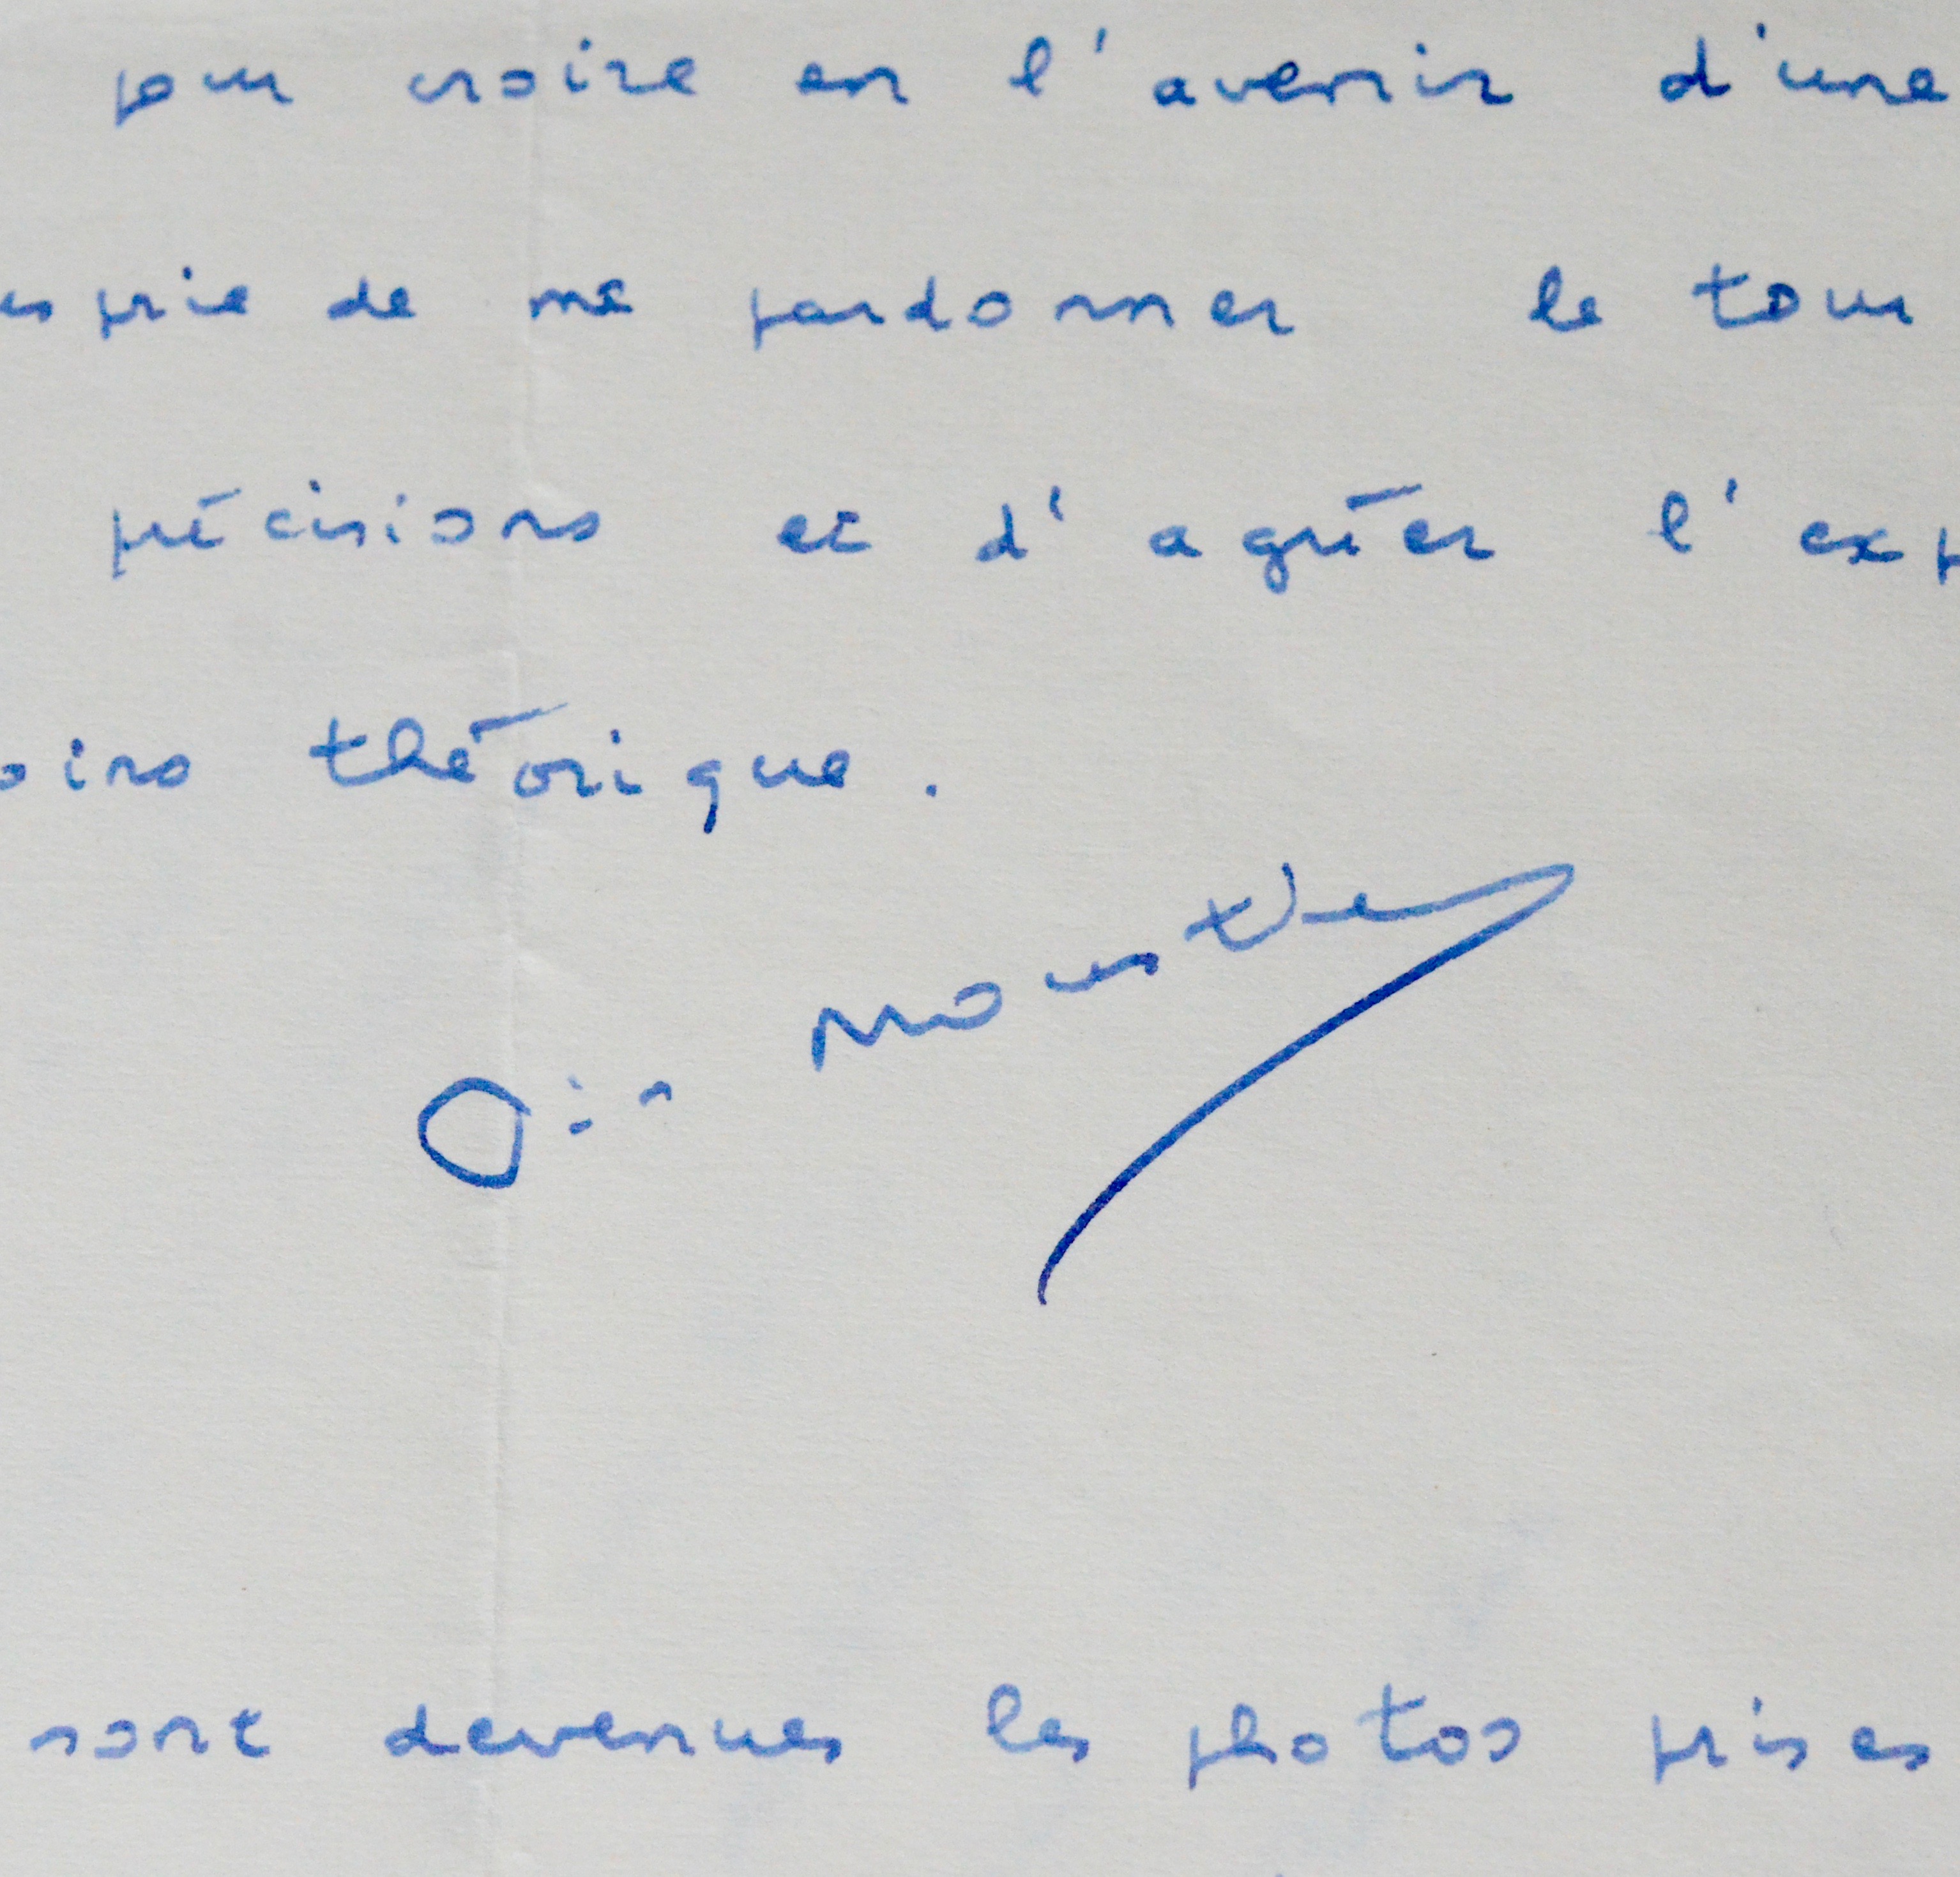 pour croire en l'avenir d'une
prie de me pardonner le tour
précisions et d'agréer l'exp
théorique.
sont devenues les photos prises